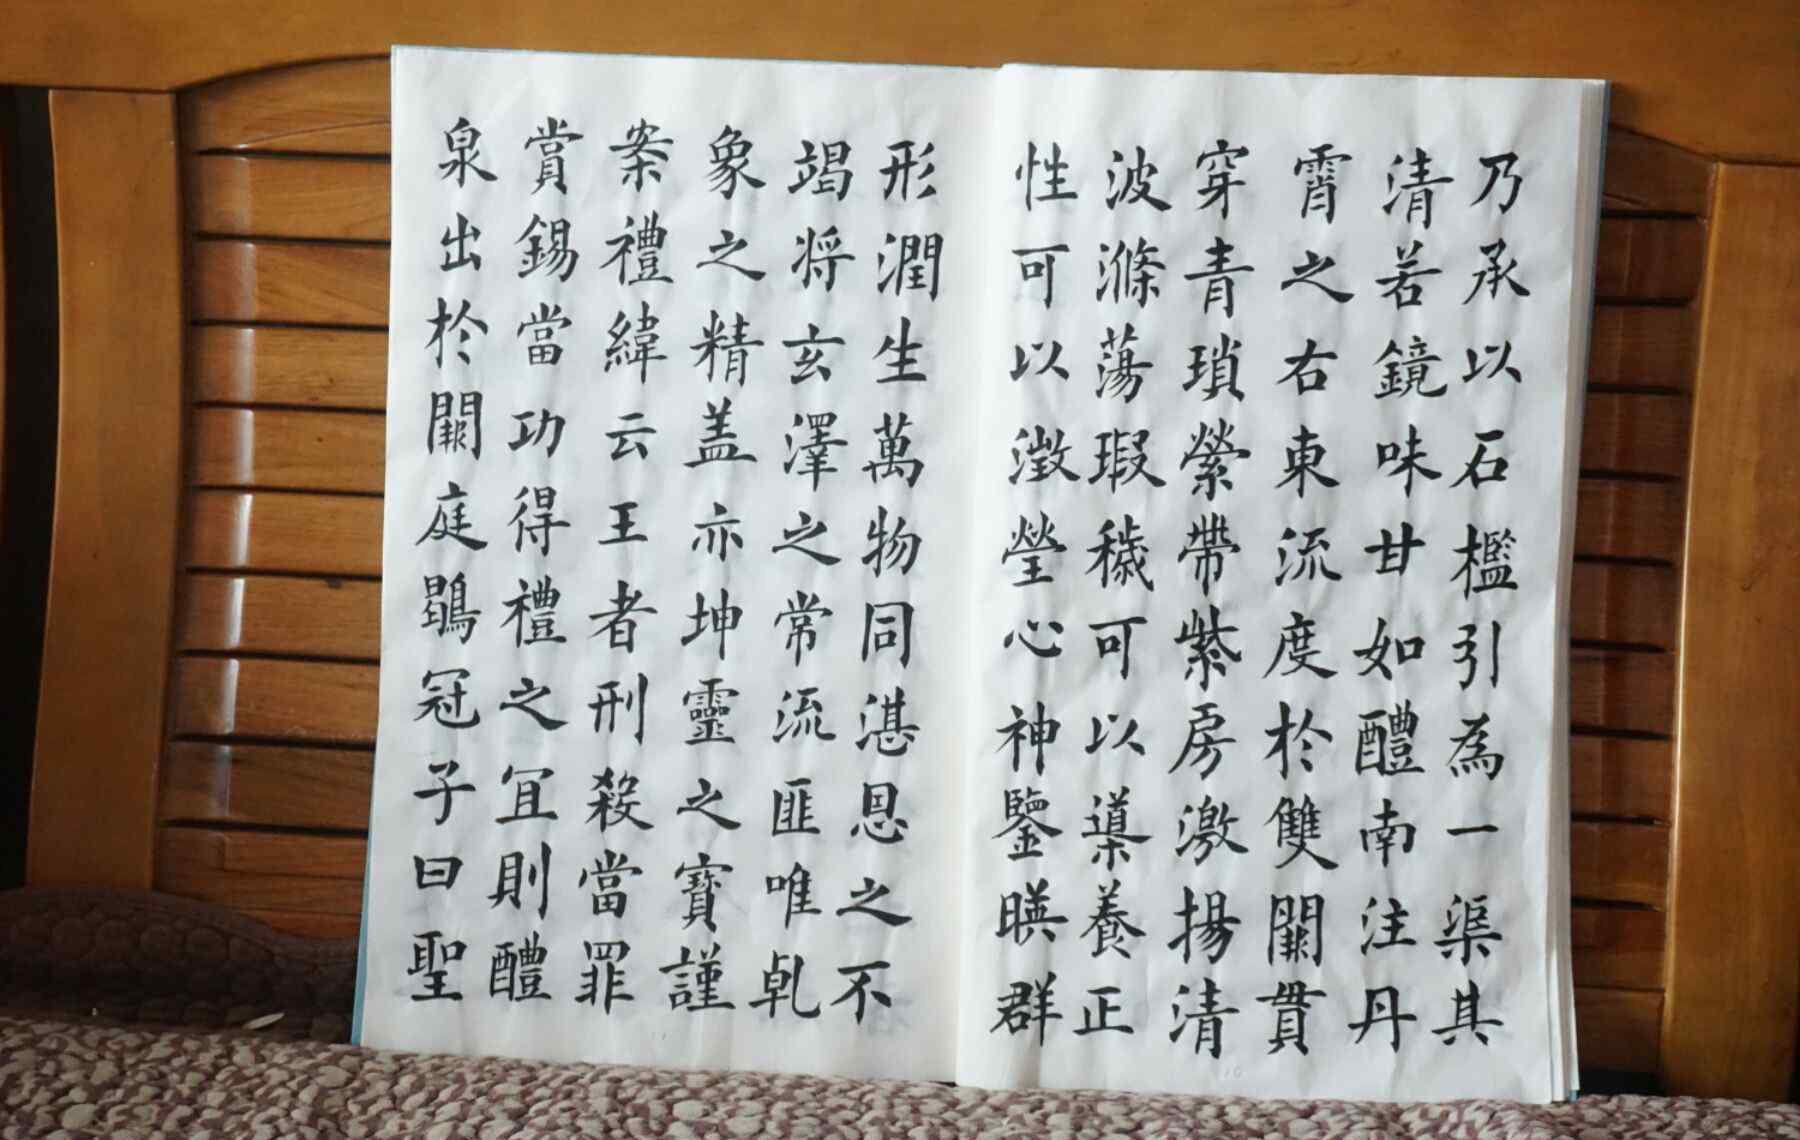 乃承以石檻引為一渠其
清若鏡味甘如醴南注丹
霄之右東流度於雙闕貫
穿青瑣縈帶紫房激揚清
波滌蕩瑕穢可以導養正
性可以澂瑩心神鑒暎群
形潤生萬物同湛恩之不
竭将玄澤之常流匪唯乹
象之精盖亦坤靈之寶謹
案禮緯云王者刑殺當罪
賞錫當功得禮之冝則醴
泉出於闕庭鶡冠子曰聖